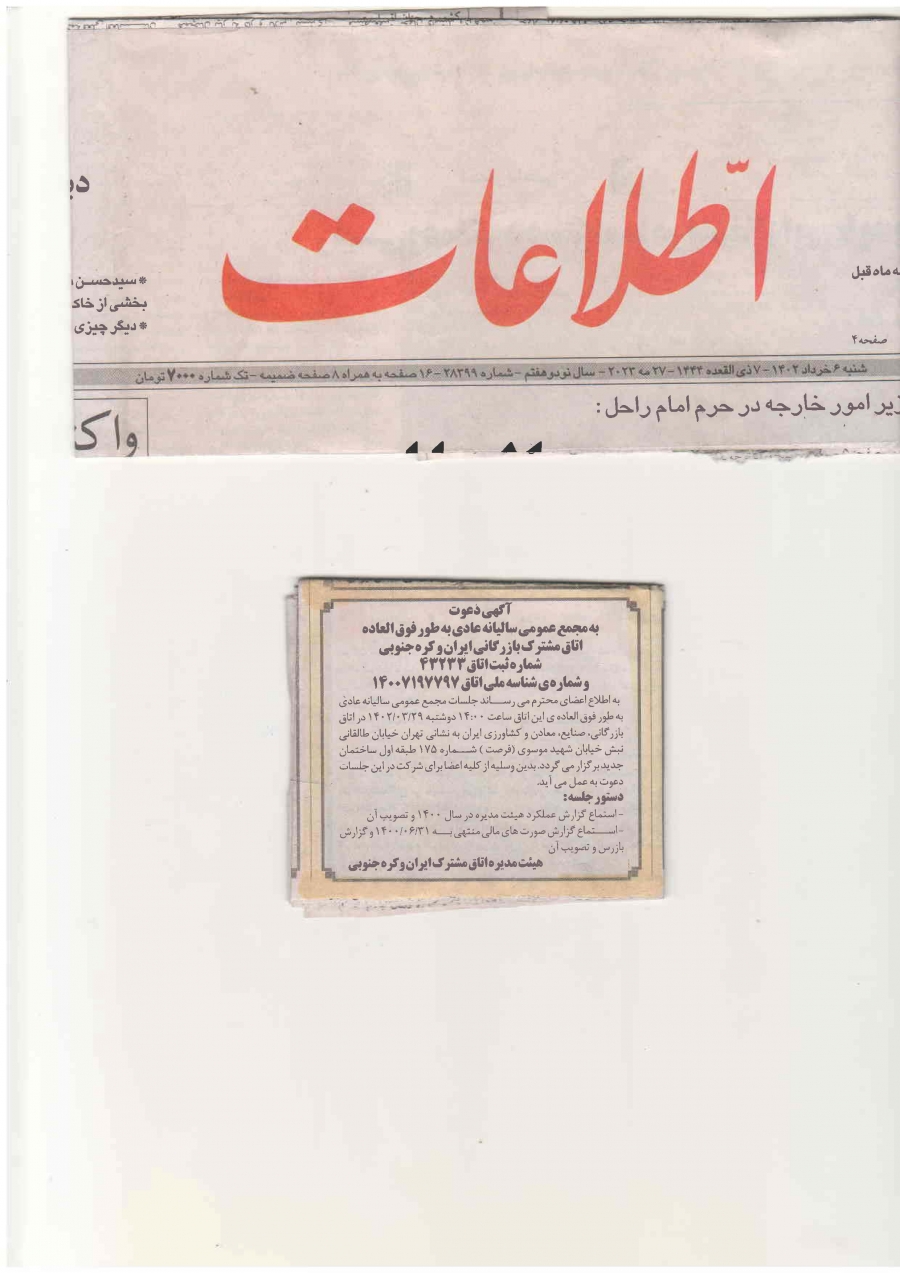 اطّلاعات
ه ماه قبل
صفحه ۴
* سیدحسن
بخشی از خاک
* دیگر چیزی
شنبه ۶ خرداد ۱۴۰۲ - ۷ ذی القعده ۱۴۴۴ - ۲۷ مه ۲۰۲۳ - سال نود و هفتم - شماره ۲۸۳۹۹ - ۱۶ صفحه به همراه ۸ صفحه ضمیمه - تک شماره ۷۰۰۰ تومان
زیر امور خارجه در حرم امام راحل :
آگهی دعوت
به مجمع عمومی سالیانه عادی به طور فوق العاده
اتاق مشترک بازرگانی ایران و کره جنوبی
شماره ثبت اتاق ۴۳۲۳۳
و شماره ی شناسه ملی اتاق ۱۴۰۰۷۱۹۷۷۹۷
به اطلاع اعضای محترم می رساند جلسات مجمع عمومی سالیانه عادی
به طور فوق العاده ی این اتاق ساعت ۱۴:۰۰ دوشنبه ۱۴۰۲/۰۳/۲۹ در اتاق
بازرگانی، صنایع، معادن و کشاورزی ایران به نشانی تهران خیابان طالقانی
نبش خیابان شهید موسوی (فرصت) شماره ۱۷۵ طبقه اول ساختمان
جدید برگزار می گردد. بدین وسلیه از کلیه اعضا برای شرکت در این جلسات
دعوت به عمل می آید.
دستور جلسه:
- استماع گزارش عملکرد هیئت مدیره در سال ۱۴۰۰ و تصویب آن
- استماع گزارش صورت های مالی منتهی به ۱۴۰۰/۰۶/۳۱ و گزارش
بازرس و تصویب آن
هیئت مدیره اتاق مشترک ایران و کره جنوبی